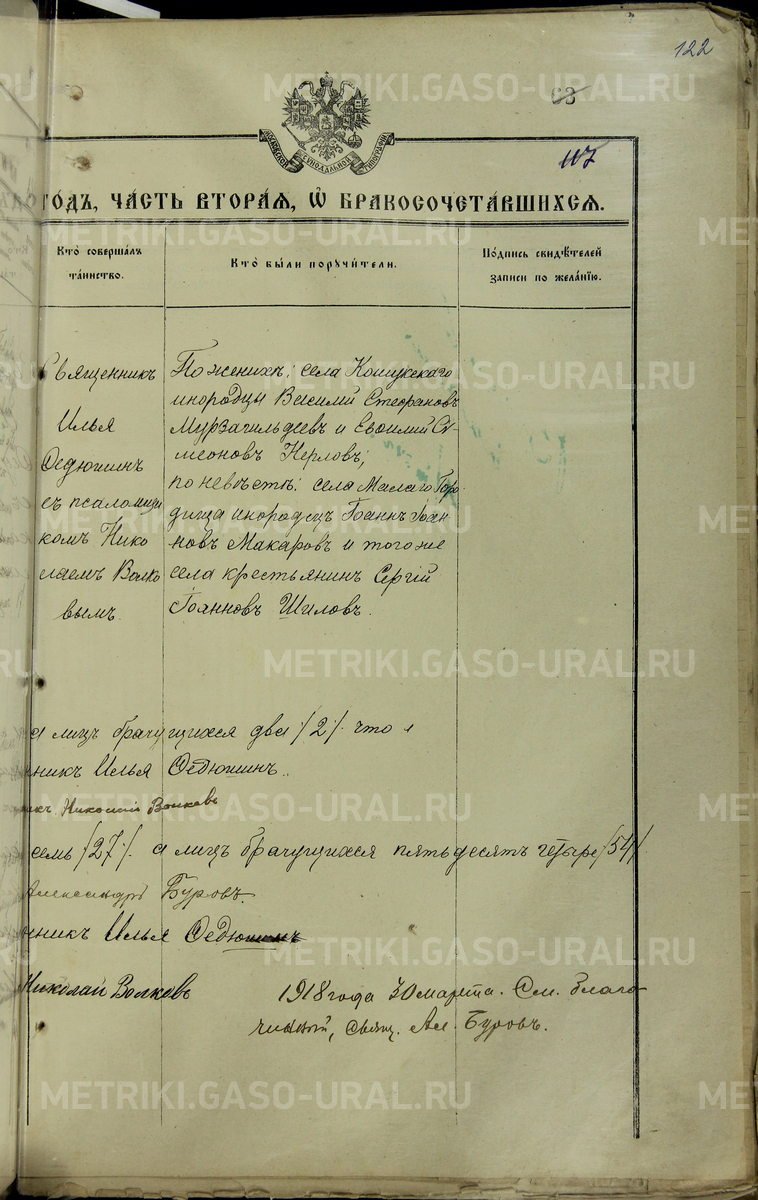 122
63
117
ХАРЬКОВСКОЙ СѴНОДАЛЬНОЙ ТИПОГРАФІИ
ГОДЪ, ЧАСТЬ ВТОРАЯ, Ѽ БРАКОСОЧЕТАВШИХСЯ.
Кто совершалъ таинство.
Кто были поручители.
Подпись свидѣтелей записи по желанію.
Священникъ
Илья
Ѳедюшинъ
съ псаломщи
комъ Нико
лаемъ Волко
вымъ.
По женихѣ: села Кошукскаго
инородцы Василій Стефановъ
Мурзагильдеевъ и Евѳимій Си-
меоновъ Нерловъ;
по невѣстѣ: села Малаго Горо
дища инородецъ Іоаннъ Іоан
новъ Макаровъ и того же
села крестьянинъ Сергій
Іоанновъ Шиловъ.
а лицъ брачущихся два /2/. что
никъ Илья Ѳедюшинъ.
Николай Волковъ
семь /27/. а лицъ брачущихся пятьдесятъ четыре /54/.
Александръ Буровъ.
нникъ Илья Ѳедюшинъ
Николай Волковъ
1918 года 30 марта. См. благо
чинный, свящ. Ал. Буровъ.
METRIKI.GASO-URAL.RU